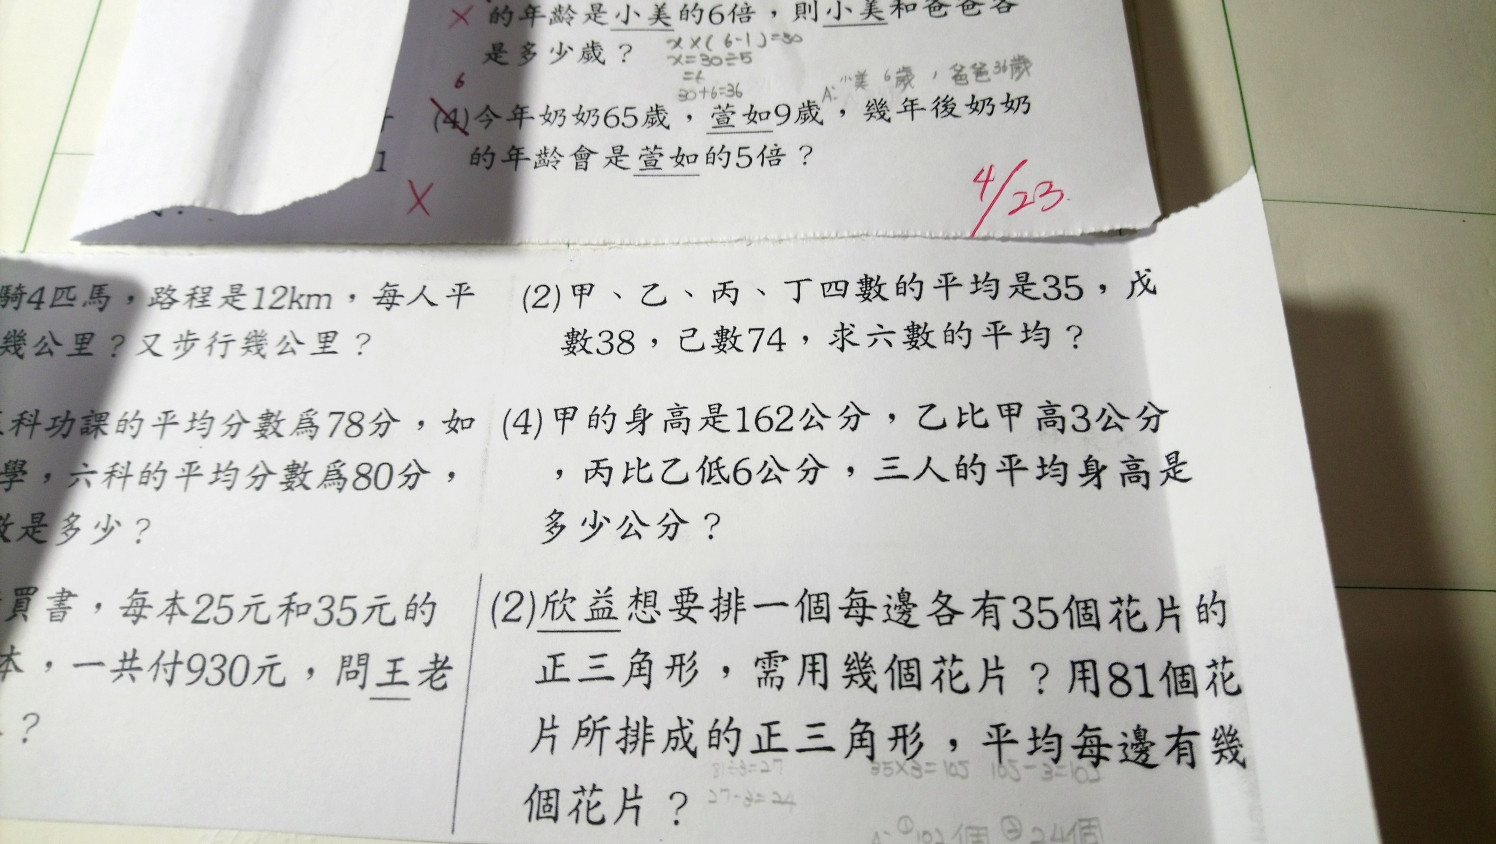 的年齡是小美的6倍，則小美和爸爸各
是多少歲？
x×(6-1)=30
x=30÷5
=6
30+6=36
A:小美6歲，爸爸36歲
6
(4)今年奶奶65歲，萱如9歲，幾年後奶奶
的年齡會是萱如的5倍？
4/23
騎4匹馬，路程是12km，每人平
幾公里？又步行幾公里？
(2)甲、乙、丙、丁四數的平均是35，戊
數38，己數74，求六數的平均？
科功課的平均分數為78分，如
學，六科的平均分數為80分，
是多少？
(4)甲的身高是162公分，乙比甲高3公分
，丙比乙低6公分，三人的平均身高是
多少公分？
買書，每本25元和35元的
本，一共付930元，問王老
？
(2)欣益想要排一個每邊各有35個花片的
正三角形，需用幾個花片？用81個花
片所排成的正三角形，平均每邊有幾
個花片？
81÷3=27
27-3=24
35×3=105 105-3=102
A:①102個 ②24個